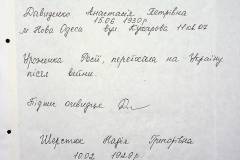 Давиденко Анастасія Петрівна
15.06 1930 р
м Нова Одеса вул Кухарова 11 кв 07
Уроженка Росії, переїхала на Україну
після війни.
Підпис очевидця
Шерстюк Марія Григорівна
10.02 1929 р